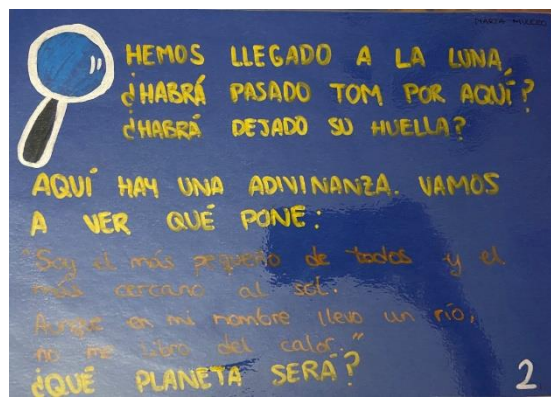 HEMOS LLEGADO A LA LUNA,
¿HABRÁ PASADO TOM POR AQUÍ?
¿HABRÁ DEJADO SU HUELLA?
AQUÍ HAY UNA ADIVINANZA. VAMOS
A VER QUÉ PONE:
"Soy el más pequeño de todos y el
más cercano al sol.
Aunque en mi nombre llevo un río,
no me libro del calor."
¿QUÉ PLANETA SERÁ?
2